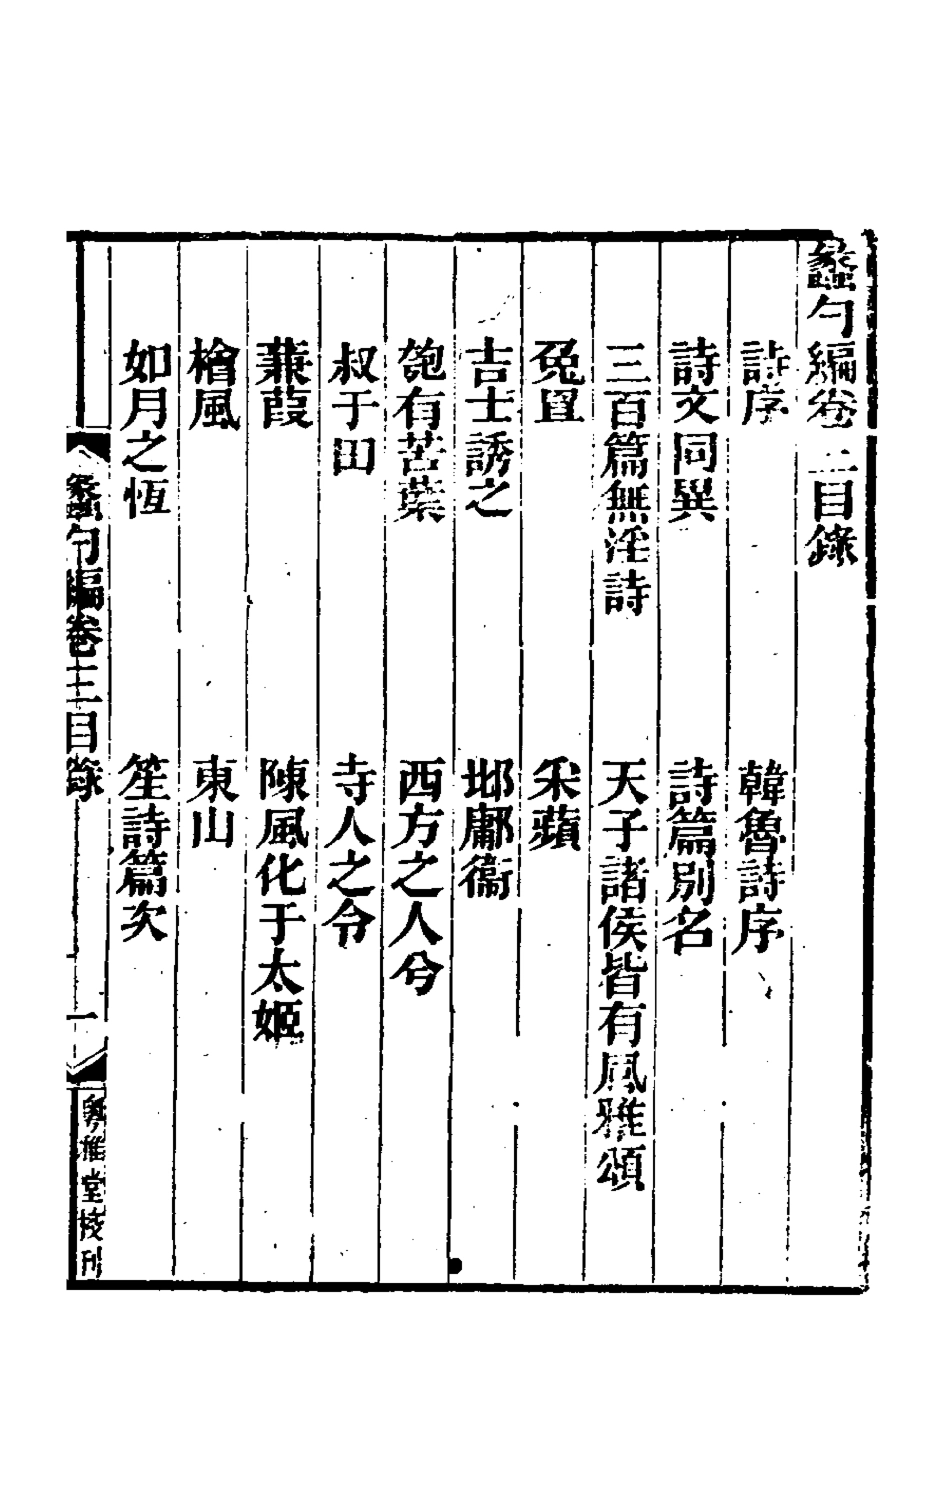 蠡勺編卷三目錄
詩序　韓魯詩序
詩文同異　詩篇別名
三百篇無淫詩　天子諸侯皆有風雅頌
兔罝　采蘋
吉士誘之　邶鄘衞
匏有苦葉　西方之人兮
叔于田　寺人之令
蒹葭　陳風化于太姬
檜風　東山
如月之恆　笙詩篇次
蠡勺編卷三目錄　一　粵雅堂校刊